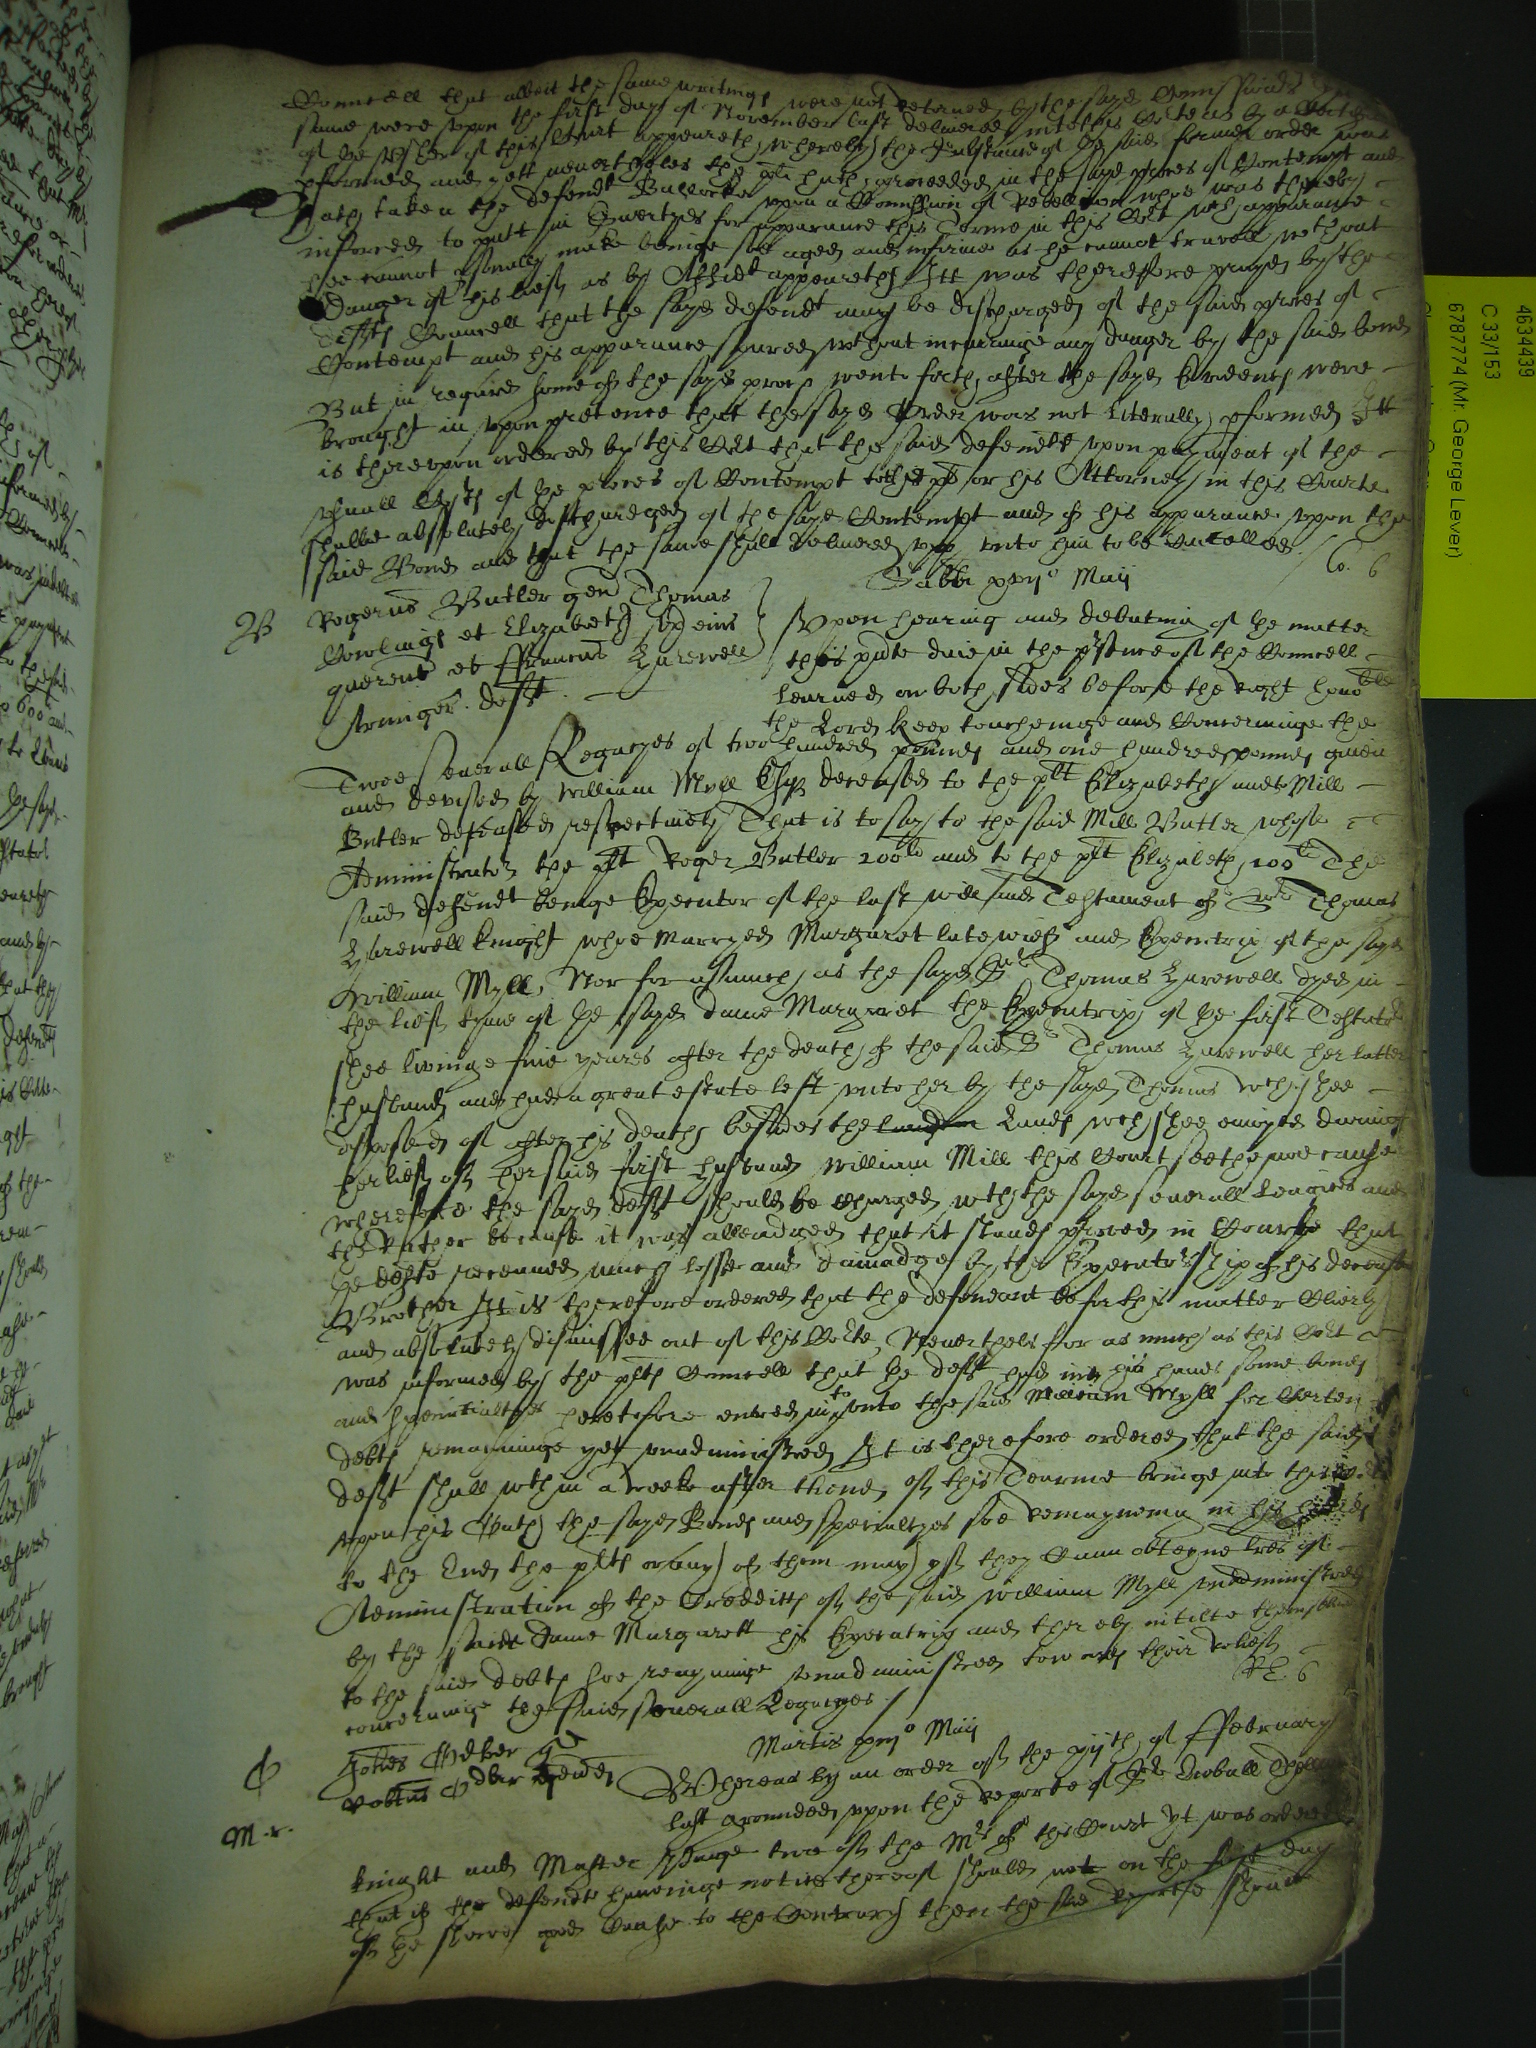 Councell that albeit the same writings were not retorned by the sayd Comissioners
same were vpon the first day of November last delivered into this Corte as by a Certificat
of the vsher of this Court appeareth, whereby the substance of the said former order was
pformed and yett neverthelesse the plt hath proceeded in the sayd proces of Contempt and
hath taken the defendt Bullocke vpon a Comission of Rebellion whoe was thereby
inforced to putt in Suertyes for apparance this Terme in this Cort wch apparance
hee cannot psonally make beinge soe aged and infirme as he cannot travell without
danger of his lief as by Affidt appeareth Itt was therefore prayed by the
defts Councell that the sayd defendt may be discharged of the said proces of
Contempt and his apparance spared wthout incurringe any danger by the said bond
But in regard some of the sayd proces wente forth after the sayd Evidences were
brought in vpon pretence that the sayd Order was not Literally pformed Itt
is therevpon ordered by this Cort that the said defendt vpon payment of the
vsuall Costs of the proces of Contempt to the plt or his Attorney in this Courte
shalbe absolutely discharged of the sayd Contempt and of his apparance vpon the
said Bond and that the same shalbe delivered vpp vnto him to be Cancelled
Co. 6
Sabbi Maij
B
Rogerus Butler gen Thomas
Rowlings et Elizabeth vxor eius
querent et ffrancus Harewell
Armiger deft
Vpon hearing and debating of the matter
this pnte daie in the psence of the Councell
learned on both sides before the right honoble
the Lord Keep touchinge and Concerninge the
Twoe severall Legacyes of two hundred pounds and one hundred pounds given
and devised by William Myll Esqr deceased to the plt Elizabeth and to Mill
Butler deceased respectively That is to say to the said Mill Butler whose
Administrator the plt Roger Butler 200li and to the plt Elizabeth 100li The
said defendt beinge Executor of the last will and Testament of Sr Thomas
Harewell knight whoe marryed Margaret late wief and Executrix of the sayd
William Myll, Now for asmuch as the sayd Sr Thomas Harewell dyed in
the lief tyme of the sayd dame Margaret the Executrix of the first Testator
shee livinge five yeares after the death of the said Sr Thomas Harewell her latter
husband and had a great estate left vnto her by the sayd Thomas wch shee
disposed of after his death besides the Lands wch shee enioyed during
her lief of her said first husband William Mill this Court seethe noe cause
wherefore the sayd deft should be charged wth the sayd severall Legacies and
the rather because it was alleadged that it stands proved in Courte that
he hath receaved much losse and damadge by the Executorshipp of his deceased
Brother It is therefore ordered that the defendant be for this matter Clerely
and absolutely dismissed out of this Corte, Neverthels for as much as this Cort
was informed by the plts Councell that the deft had in his hands some bonds
and specialtyes heretofore entred into vnto the said William Myll for Certen
debts remayninge yet vnadministred It is therefore ordered that the said
deft shall wthin a weeke after thend of this Tearme bringe into this Cort
vpon his Oath the sayd Bonds and specialtyes soe remayneing in his hands
to the End the plts or any of them may yf they Cann obteyne lres of
Administration of the Creditts of the said William Myll vnadministred
by the saide dame Margarett his Executrix and thereby intitle themselves
to the said debts soe remayninge vnadministred towards their relief
concerninge the said severall Legacyes
RE. 6
Martis Maij
O
Johes Odber
Robtus Odber defend
M.r.
Whereas by an order of the xijth of ffebruary
last grounded vpon the reporte of Sr
knight and Master two of the Mrs of this Court yt was ordered
that if the defendt haveinge notice thereof should not on the first day
of the shewe good Cause to the Contrary then the said reporte should